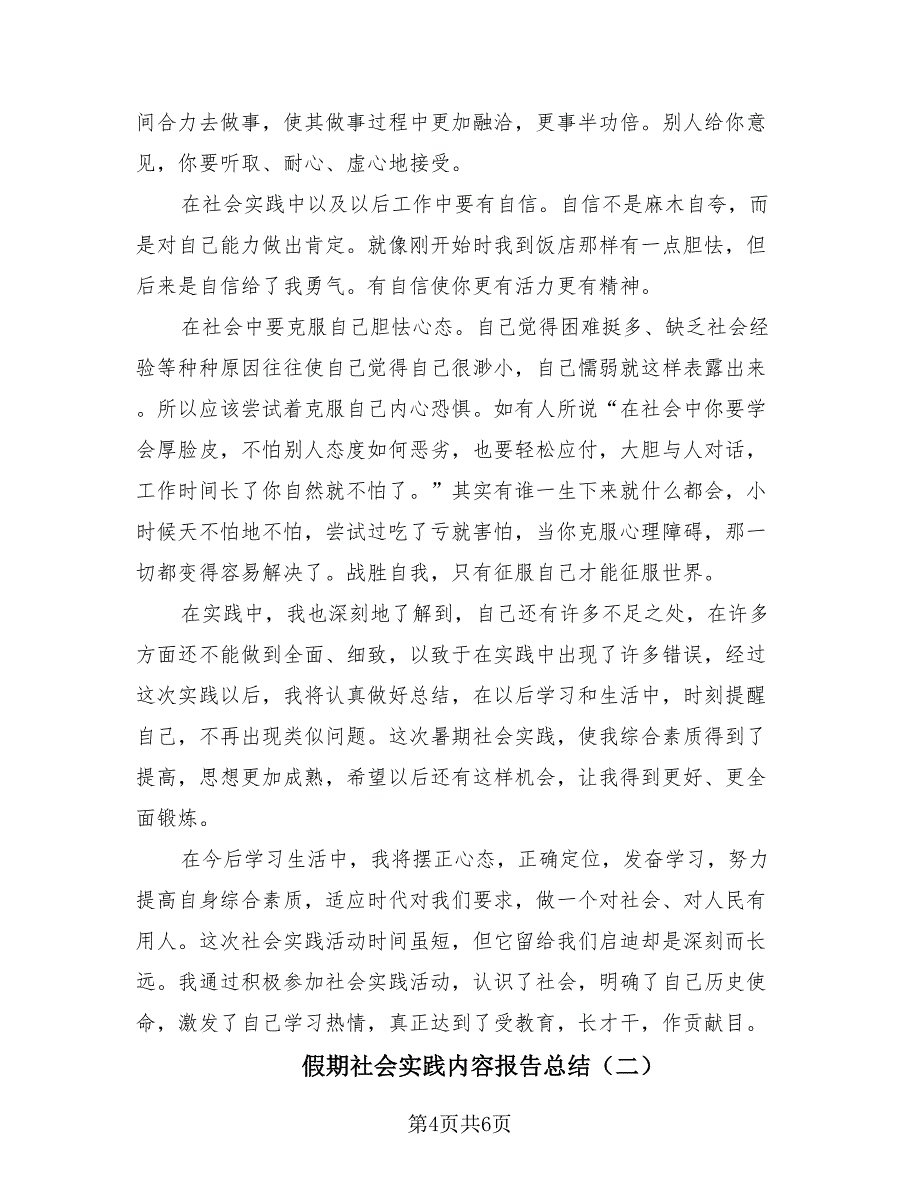 间合力去做事，使其做事过程中更加融洽，更事半功倍。别人给你意
见，你要听取、耐心、虚心地接受。
在社会实践中以及以后工作中要有自信。自信不是麻木自夸，而
是对自己能力做出肯定。就像刚开始时我到饭店那样有一点胆怯，但
后来是自信给了我勇气。有自信使你更有活力更有精神。
在社会中要克服自己胆怯心态。自己觉得困难挺多、缺乏社会经
验等种种原因往往使自己觉得自己很渺小，自己懦弱就这样表露出来
。所以应该尝试着克服自己内心恐惧。如有人所说“在社会中你要学
会厚脸皮，不怕别人态度如何恶劣，也要轻松应付，大胆与人对话，
工作时间长了你自然就不怕了。”其实有谁一生下来就什么都会，小
时候天不怕地不怕，尝试过吃了亏就害怕，当你克服心理障碍，那一
切都变得容易解决了。战胜自我，只有征服自己才能征服世界。
在实践中，我也深刻地了解到，自己还有许多不足之处，在许多
方面还不能做到全面、细致，以致于在实践中出现了许多错误，经过
这次实践以后，我将认真做好总结，在以后学习和生活中，时刻提醒
自己，不再出现类似问题。这次暑期社会实践，使我综合素质得到了
提高，思想更加成熟，希望以后还有这样机会，让我得到更好、更全
面锻炼。
在今后学习生活中，我将摆正心态，正确定位，发奋学习，努力
提高自身综合素质，适应时代对我们要求，做一个对社会、对人民有
用人。这次社会实践活动时间虽短，但它留给我们启迪却是深刻而长
远。我通过积极参加社会实践活动，认识了社会，明确了自己历史使
命，激发了自己学习热情，真正达到了受教育，长才干，作贡献目。
假期社会实践内容报告总结（二）
第4页共6页